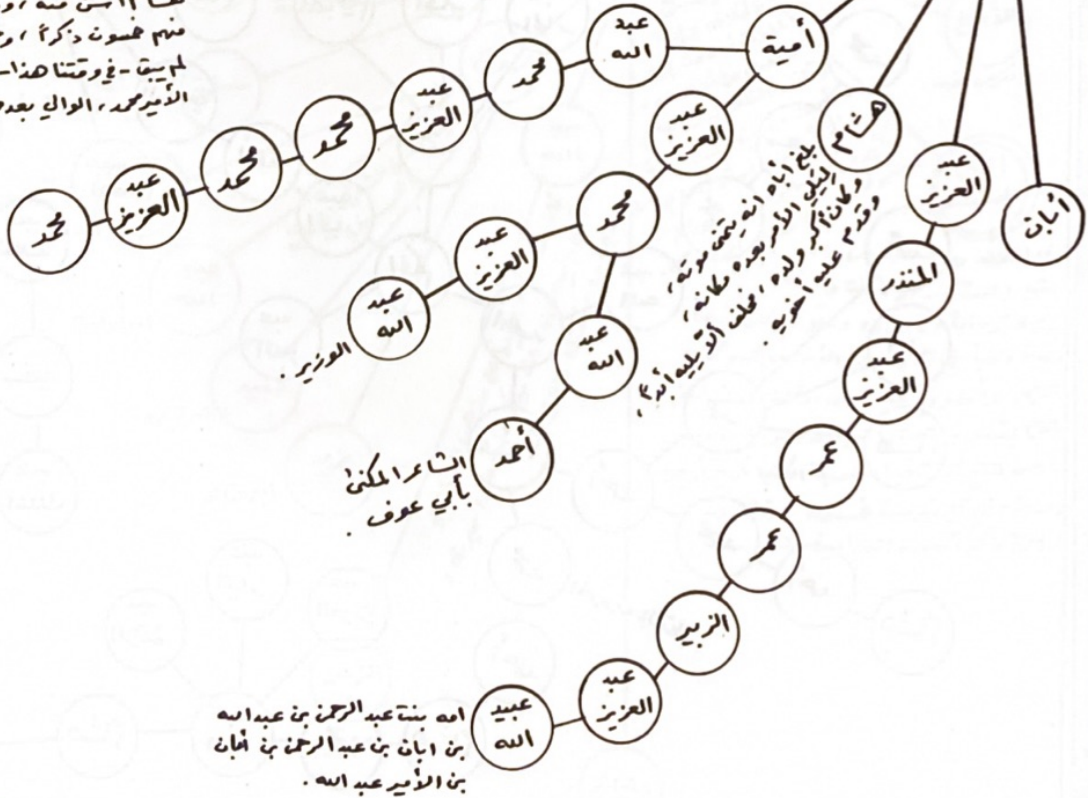 منهم خمسون ذكراً ، و
لم يبق - في وقتنا هذا -
الأمير محمد ، الوالي بعده
أمية
عبد
الله
محمد
عبد
العزيز
محمد
محمد
عبد
العزيز
محمد
عبد
العزيز
محمد
عبد
العزيز
عبد
الله
الوزير .
عبد
الله
أحمد
الشاعر المكنى
بأبي عوف .
هشام
بلغ أباه انه يتمنى موته ،
ليلي الأمر بعده مكانه ،
وكان أكبر ولده ، فحلف ألا يليه أبداً ،
وقدم عليه أخويه .
عبد
العزيز
المنذر
عبد
العزيز
عمر
عمر
الزبير
عبد
العزيز
عبيد
الله
امه بنت عبد الرحمن بن عبد الله
بن ابان بن عبد الرحمن بن أبان
بن الأمير عبد الله .
ابان